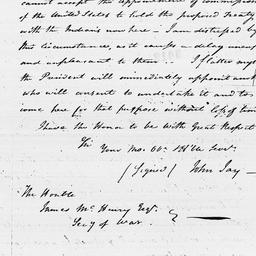 cannot accept the appointment of commissioner
of the United States to hold the proposed Treaty
with the Indians now here – I am distressed by
this circumstance, as it causes a delay
and unpleasant to them. I flatter
the President will immediately appoint
who will consent to undertake it and to
come here for that purpose without loss of time
I have the Honor to be with Great Respect
Sir
Your Mo. Ob. Hble Serv.
(Signed) John Jay –
The Honble
James Mc Henry Esqr.
Secy of War.